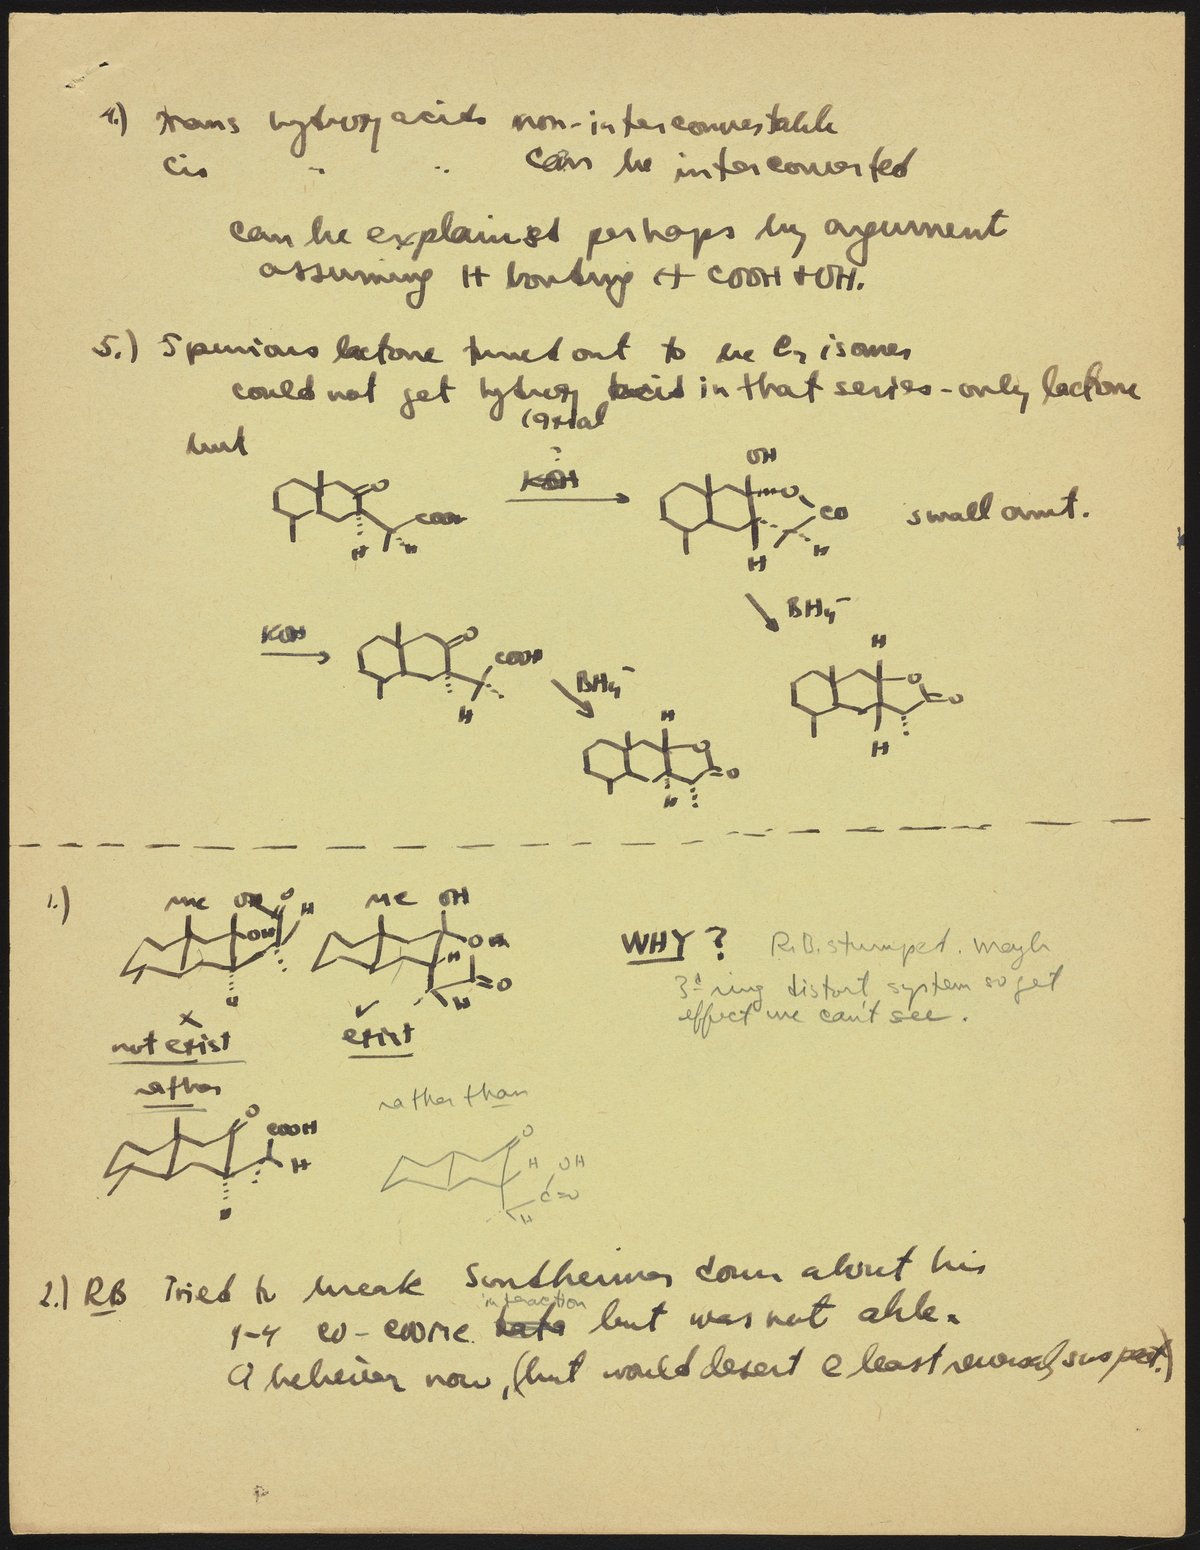 4.) trans hydroxy acids non-interconvertable
cis " " can be interconverted
can be explained perhaps by argument
assuming H bonding + COOH + OH.
5.) Spurious lactone turned out to be C, isomer
could not get hydroxy acid in that series - only lactone
(axial
but
?
KOH
O
COOH
H
H
OH
O
CO
H
H
small amt.
BH4-
KOH
O
COOH
H
BH4-
H
O
O
H
H
O
O
H
1.)
Me OH O H
OH
H
Me OH
OH
H
O
H
WHY? R.B. stumped. Maybe
3d ring distort system so get
effect we can't see.
x
not exist
✓
exist
rather
rather than
O
COOH
H
H
O
H
OH
C=O
H
2.) RB Tried to break Sondheimer down about his
interaction
1-4 CO-COOMe but was not able.
A believer now, (but would desert @ least reversal, suspect.)